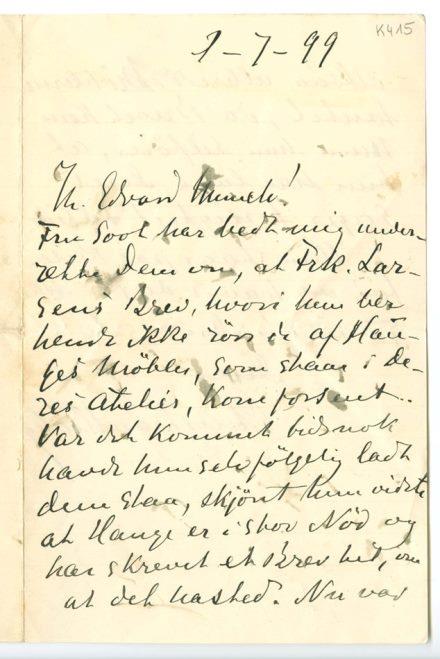 K415
1-7-99
Hr. Edvard Munch!
Fru Soot har bedt mig under-
rette Dem om, at Frk. Lar-
sens Brev, hvori hun ber
hende ikke röre de af Hau-
ges Möbler, som staar i De-
res Atelier, kom forsent.
Var det kommet tidsnok
havde hun selvfölgelig ladt
dem staa, skjönt hun vidste
at Hauge er i stor Nöd og
har skrevet et Brev hid, om
at det hasted. Nu var